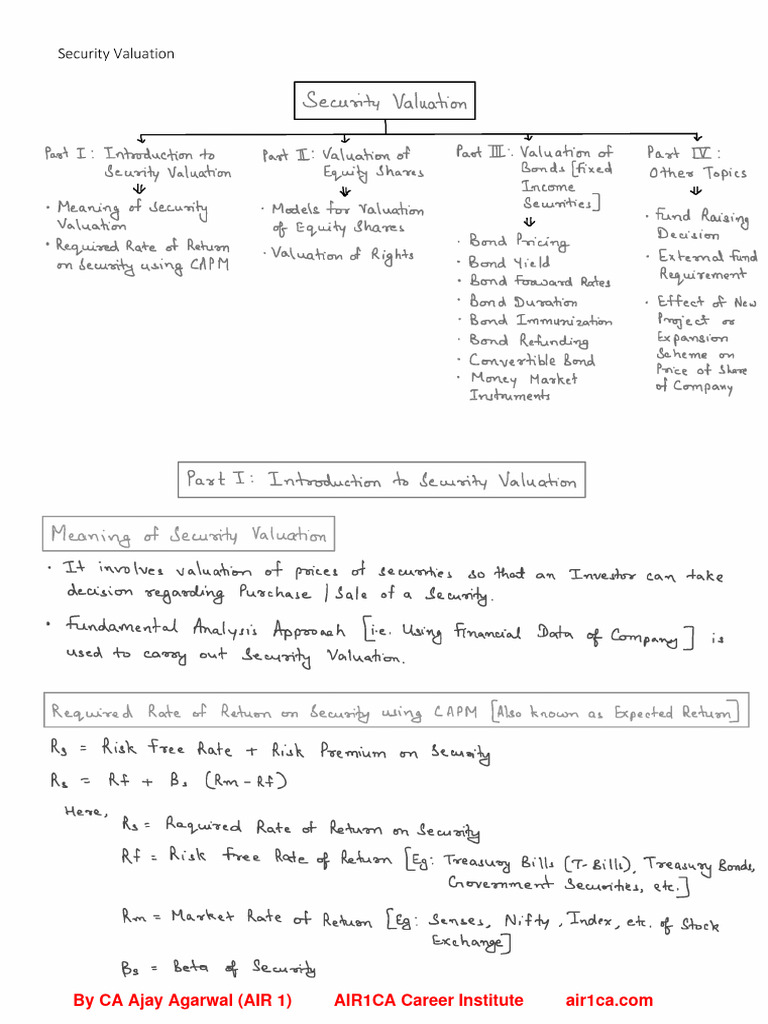 Security Valuation
Security Valuation
Part I: Introduction to
Security Valuation
• Meaning of Security
Valuation
• Required Rate of Return
on Security using CAPM
Part II: Valuation of
Equity Shares
• Models for Valuation
of Equity Shares
• Valuation of Rights
Part III: Valuation of
Bonds [Fixed
Income
Securities]
• Bond Pricing
• Bond Yield
• Bond Forward Rates
• Bond Duration
• Bond Immunization
• Bond Refunding
• Convertible Bond
• Money Market
Instruments
Part IV:
Other Topics
• Fund Raising
Decision
• External Fund
Requirement
• Effect of New
Project or
Expansion
Scheme on
Price of Share
of Company
Part I: Introduction to Security Valuation
Meaning of Security Valuation
• It involves valuation of prices of securities so that an Investor can take
decision regarding Purchase / Sale of a Security.
• Fundamental Analysis Approach [i.e. Using Financial Data of Company] is
used to carry out Security Valuation.
Required Rate of Return on Security using CAPM [Also known as Expected Return]
Rs = Risk Free Rate + Risk Premium on Security
Rs = Rf + Bs (Rm - Rf)
Here,
Rs = Required Rate of Return on Security
Rf = Risk Free Rate of Return [Eg: Treasury Bills (T-Bills), Treasury Bonds,
Government Securities, etc.]
Rm = Market Rate of Return [Eg: Senses, Nifty, Index, etc. of Stock
Exchange]
Bs = Beta of Security
By CA Ajay Agarwal (AIR 1) AIR1CA Career Institute air1ca.com